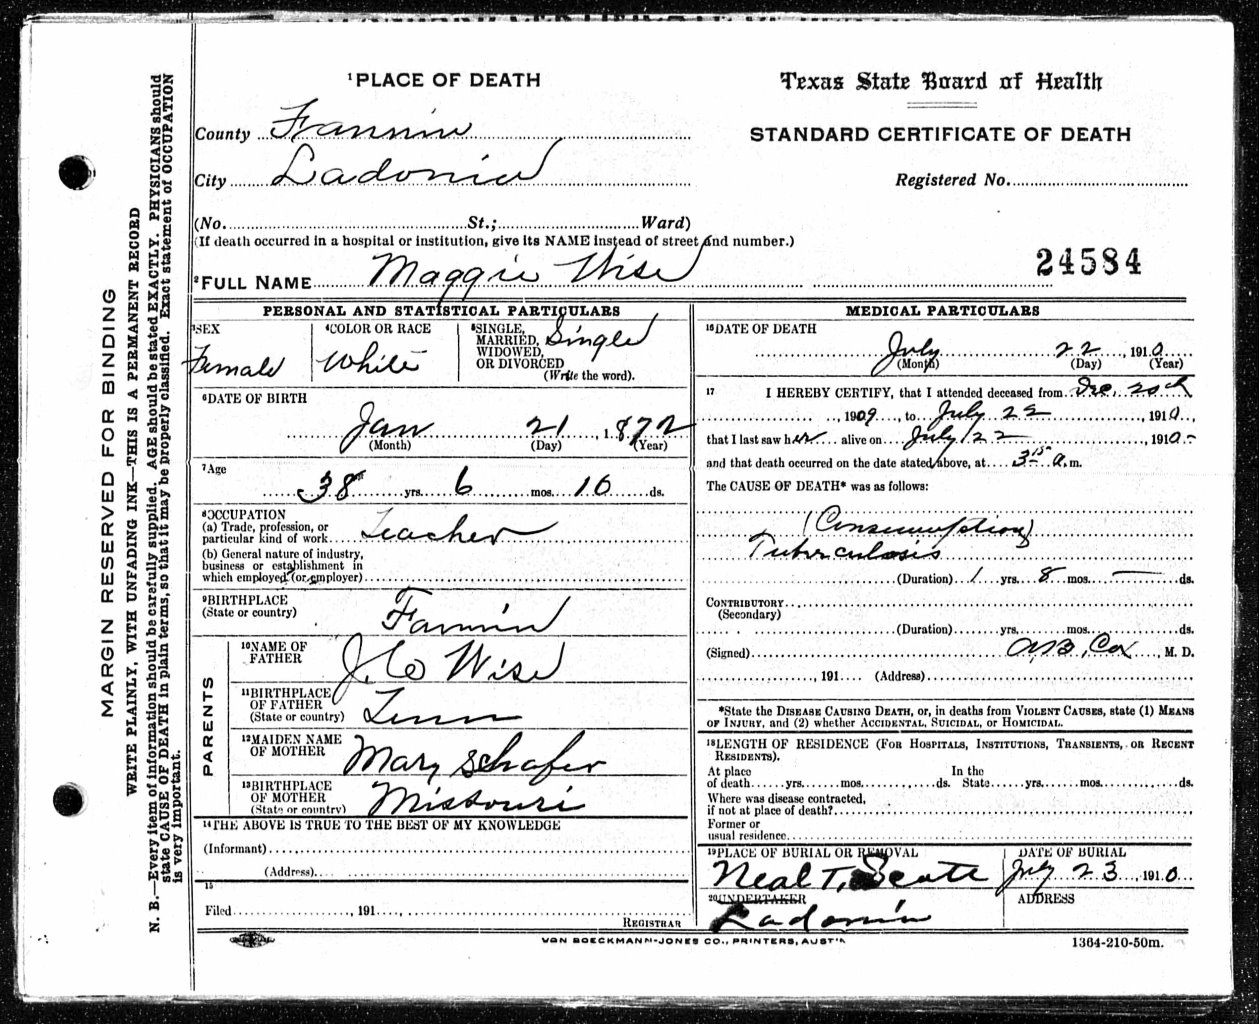 MARGIN RESERVED FOR BINDING
WRITE PLAINLY, WITH UNFADING INK—THIS IS A PERMANENT RECORD
N. B.—Every item of information should be carefully supplied. AGE should be stated EXACTLY. PHYSICIANS should
state CAUSE OF DEATH in plain terms, so that it may be properly classified. Exact statement of OCCUPATION
is very important.
1 PLACE OF DEATH
County Fannin
City Ladonia
(No. St.; Ward)
(If death occurred in a hospital or institution, give its NAME instead of street and number.)
Texas State Board of Health
STANDARD CERTIFICATE OF DEATH
Registered No.
24584
2 FULL NAME Maggie Wise
PERSONAL AND STATISTICAL PARTICULARS
3 SEX
Female
4 COLOR OR RACE
White
5 SINGLE, MARRIED, WIDOWED, OR DIVORCED
(Write the word).
Single
6 DATE OF BIRTH
Jan 21, 1872
(Month) (Day) (Year)
7 Age
38 yrs. 6 mos. 10 ds.
8 OCCUPATION
(a) Trade, profession, or
particular kind of work Teacher
(b) General nature of industry,
business or establishment in
which employed (or employer)
9 BIRTHPLACE
(State or country) Fannin
PARENTS
10 NAME OF
FATHER J. C. Wise
11 BIRTHPLACE
OF FATHER
(State or country) Tenn
12 MAIDEN NAME
OF MOTHER Mary Schafer
13 BIRTHPLACE
OF MOTHER
(State or country) Missouri
14 THE ABOVE IS TRUE TO THE BEST OF MY KNOWLEDGE
(Informant)
(Address)
15
Filed , 191
REGISTRAR
MEDICAL PARTICULARS
16 DATE OF DEATH
July 22, 1910
(Month) (Day) (Year)
17 I HEREBY CERTIFY, that I attended deceased from Dec. 20th
, 1909, to July 22, 1910,
that I last saw her alive on July 22, 1910-
and that death occurred on the date stated above, at 3 15 a.m.
The CAUSE OF DEATH* was as follows:
(Consumption)
Tuberculosis
(Duration) 1 yrs. 8 mos. — ds.
CONTRIBUTORY
(Secondary)
(Duration) yrs. mos. ds.
(Signed) A. B. Cox, M. D.
, 191 (Address)
*State the DISEASE CAUSING DEATH, or, in deaths from VIOLENT CAUSES, state (1) MEANS
OF INJURY, and (2) whether ACCIDENTAL, SUICIDAL, or HOMICIDAL.
18 LENGTH OF RESIDENCE (FOR HOSPITALS, INSTITUTIONS, TRANSIENTS, OR RECENT
RESIDENTS).
At place In the
of death yrs. mos. ds. State yrs. mos. ds.
Where was disease contracted,
if not at place of death?
Former or
usual residence
19 PLACE OF BURIAL OR REMOVAL
Neal T.
DATE OF BURIAL
July 23, 1910
20 UNDERTAKER
Ladonia
ADDRESS
VON BOECKMANN-JONES CO., PRINTERS, AUSTIN
1364-210-50m.